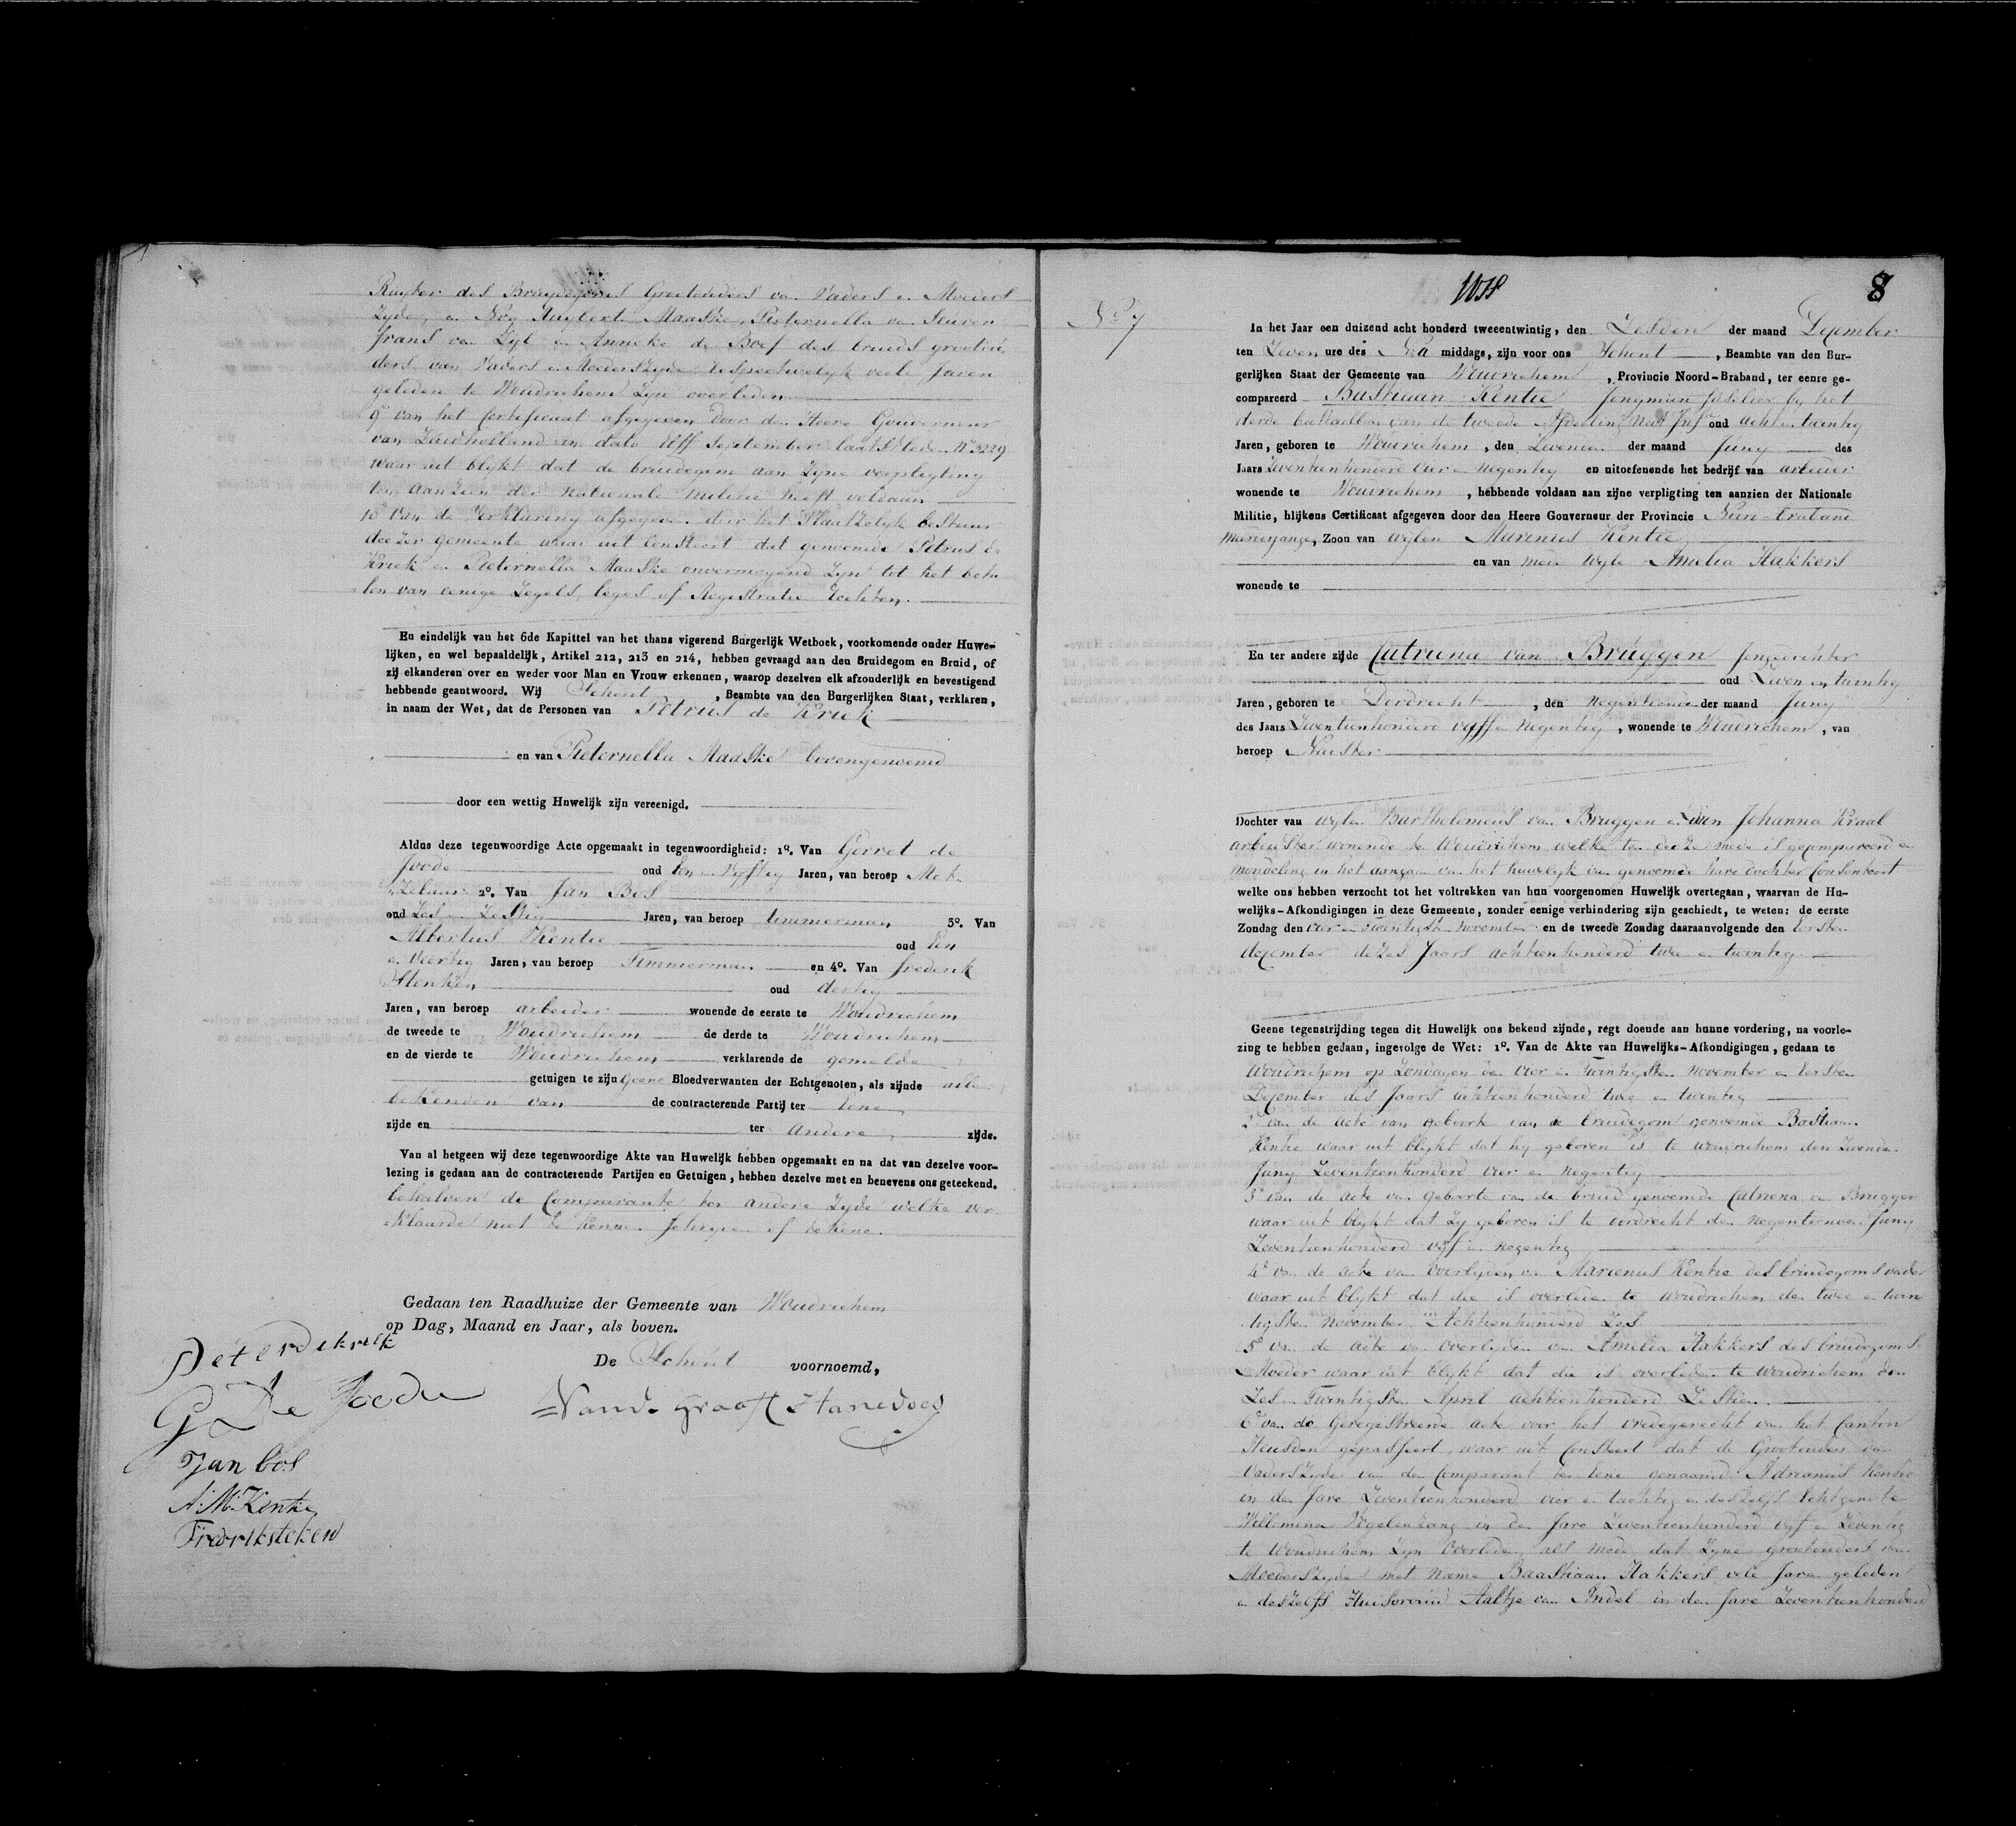 Ruyter des Bruydegoms Grootouders van Vaders en Moeders
Zyde, en Nog Huybert Maaske, Pieternella van Suuren
frans van Zyl en Anneke de Boef des bruids grootou
ders van Vaders en Moederszyde respectivelyk veele Jaren
geleden te Woudrichem Zyn overleden
9e van het Certificaat afgegeven door den Heere Gouverneur
van Zuidholland in dato Elff September laatstleden No 3229
waar uit blykt dat de bruidegom aan Zyne verpligting
ten aanzien der Nationale Militie heeft voldaan
10e Van de Verklaring afgegeven door het Plaatzelyk bestuur
deezer gemeente waar uit Consteert dat genoemde Petrus de
Kriek en Pieternella Maaske onvermogend Zyn tot het beta
len van eenige Zegels, leges of Registratie Rechten.
En eindelijk van het 6de Kapittel van het thans vigerend Burgerlijk Wetboek, voorkomende onder Huwe-
lijken, en wel bepaaldelijk, Artikel 212, 213 en 214, hebben gevraagd aan den Bruidegom en Bruid, of
zij elkanderen over en weder voor Man en Vrouw erkennen, waarop dezelven elk afzonderlijk en bevestigend
hebbende geantwoord. Wij Schout, Beambte van den Burgerlijken Staat, verklaren,
in naam der Wet, dat de Personen van Petrus de Kriek
en van Pieternella Maaske bovengenoemd
door een wettig Huwelijk zijn vereenigd.
Aldus deze tegenwoordige Acte opgemaakt in tegenwoordigheid: 1o. Van Gerret de
Joode oud Een en Vyftig Jaren, van beroep Met
zelaar 2o. Van Jan Bos
oud Zes en Zestig Jaren, van beroep timmerman 3o. Van
Albertus Kentie oud Een
en Veertig Jaren, van beroep Timmerman en 4o. Van frederik
Stenken oud dertig
Jaren, van beroep arbeider wonende de eerste te Woudrichem
de tweede te Woudrichem de derde te Woudrichem
en de vierde te Woudrichem verklarende de gemelde
getuigen te zijn Geene Bloedverwanten der Echtgenoten, als zijnde alle
bekenden van de contracterende Partij ter Eene
zijde en ter Andere zijde.
Van al hetgeen wij deze tegenwoordige Akte van Huwelijk hebben opgemaakt en na dat van dezelve voor-
lezing is gedaan aan de contracterende Partijen en Getuigen, hebben dezelve met en benevens ons geteekend.
behalven de Comparante ter andere Zyde welke ver
klaarde niet te kennen Schryven of tekene.
Gedaan ten Raadhuize der Gemeente van Woudrichem
op Dag, Maand en Jaar, als boven.
De Schout voornoemd,
Peterdekriek
G De Joode
Jan bos
A. M. Kentie
Fredriksteken
No 7
8
In het Jaar een duizend acht honderd tweeentwintig, den Zesden der maand December
ten Zeven ure des Na middags, zijn voor ons Schout, Beambte van den Bur-
gerlijken Staat der Gemeente van Woudrichem, Provincie Noord-Braband, ter eenre ge-
compareerd Bastiaan Kentie Jongman fuselier by het
derde battaillon van de tweede Afdeeling Natl Inf oud acht en twintig
Jaren, geboren te Woudrichem, den Zevenden der maand Juny des
Jaars Zeventienhonderd vier en Negentig en uitoefenende het bedrijf van arbeider
wonende te Woudrichem, hebbende voldaan aan zijne verpligting ten aanzien der Nationale
Militie, blijkens Certificaat afgegeven door den Heere Gouverneur der Provincie
Zoon van wylen Marinus Kentie
en van mede wyle Amelia Hakkers
wonende te
En ter andere zijde Catriena van Bruggen Jongedochter
oud Zeven en twintig
Jaren, geboren te Dordrecht, den Negentiende der maand Juny
des Jaars Zeventienhonderd vyff en Negentig, wonende te Woudrichem, van
beroep Naister
Dochter van wylen Barthelomeus van Bruggen en van Johanna Kraal
arbeidster wonende te Woudrichem welke ten deeze mede is gecompareerd en
mondeling in het aangaan van het huwelyk van genoemde hare dochter Consenteert
welke ons hebben verzocht tot het voltrekken van hun voorgenomen Huwelijk overtegaan, waarvan de Hu-
welijks-Afkondigingen in deze Gemeente, zonder eenige verhindering zijn geschiedt, te weten: de eerste
Zondag den vier en twintigste November en de tweede Zondag daaraanvolgende den Eersten
december dezes Jaars achtienhonderd twee en twintig
Geene tegenstrijding tegen dit Huwelijk ons bekend zijnde, regt doende aan hunne vordering, na voorle-
zing te hebben gedaan, ingevolge de Wet: 1o. Van de Akte van Huwelijks-Afkondigingen, gedaan te
Woudrichem op Zondagen den vier en Twintigsten November en Eersten
December des Jaars achtienhonderd twee en twintig
2e van de acte van geboorte van de bruidegom genoemde Bastiaan
Kentie waar uit blykt dat hy geboren is te Woudrichem den Zevenden
Juny Zeventienhonderd vier en Negentig
3e van de acte van geboorte van de bruid genoemde Catriena van Bruggen
waar uit blykt dat Zy geboren is te Dordrecht den Negentienden Juny
Zeventienhonderd vyf en Negentig
4e van de acte van Overlyden van Marienus Kentie des bruidegoms vader
waar uit blykt dat die is overleden te Woudrichem den twee en twin
tigsten November Achtienhonderd Zes
5e van de acte van Overlyden van Amelia Hakkers des bruidegoms
Moeder waar uit blykt dat die is overleden te Woudrichem den
Zes en Twintigsten April achtienhonderd Zestien.
6e van de Geregistreerde acte voor het vredegerecht van het Canton
Heusden gepasseert, waar uit Consteert dat de Grootouders van
Vaderszyde van den Comparant ter Eene genaamd Adrianus Kentie
in den Jare Zeventienhonderd vier en tachtig en deszelfs Echtgenote
Willemina in den Jare Zeventienhonderd vyf en Zeventig
te Woudrichem Zyn Overleden, als mede dat Zyne grootouders van
Moederszyde met Name Baastiaan Hakkers vele Jaren geleden
en deszelfs Huisvrouw Aaltje van Andel in den Jare Zeventienhonderd